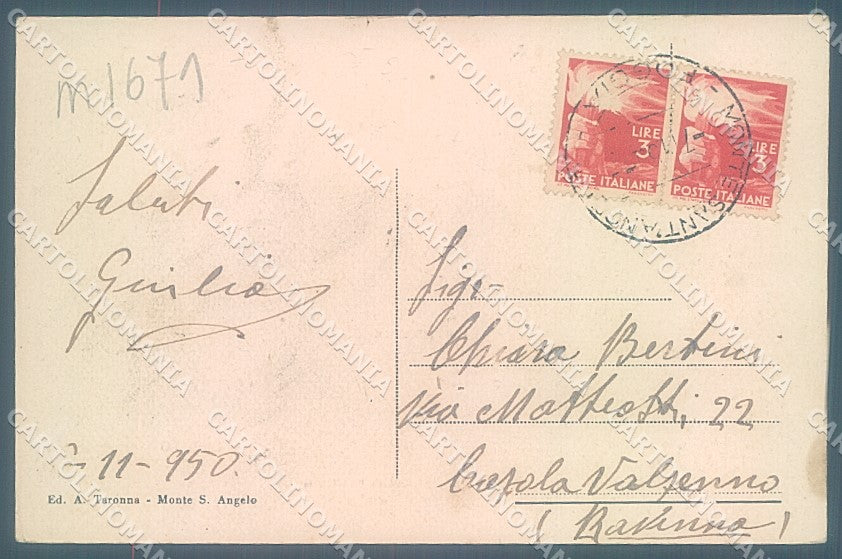 m 1671
LIRE
3
POSTE ITALIANE
LIRE
3
POSTE ITALIANE
MONTE SANT'ANGELO
Saluti
Giulia
11-950.
Ed. A. Taronna - Monte S. Angelo
Sig.
Chiara Bertini
Via Matteotti, 22
Casola Valsenno
(Ravenna)
CARTOLINOMANIA